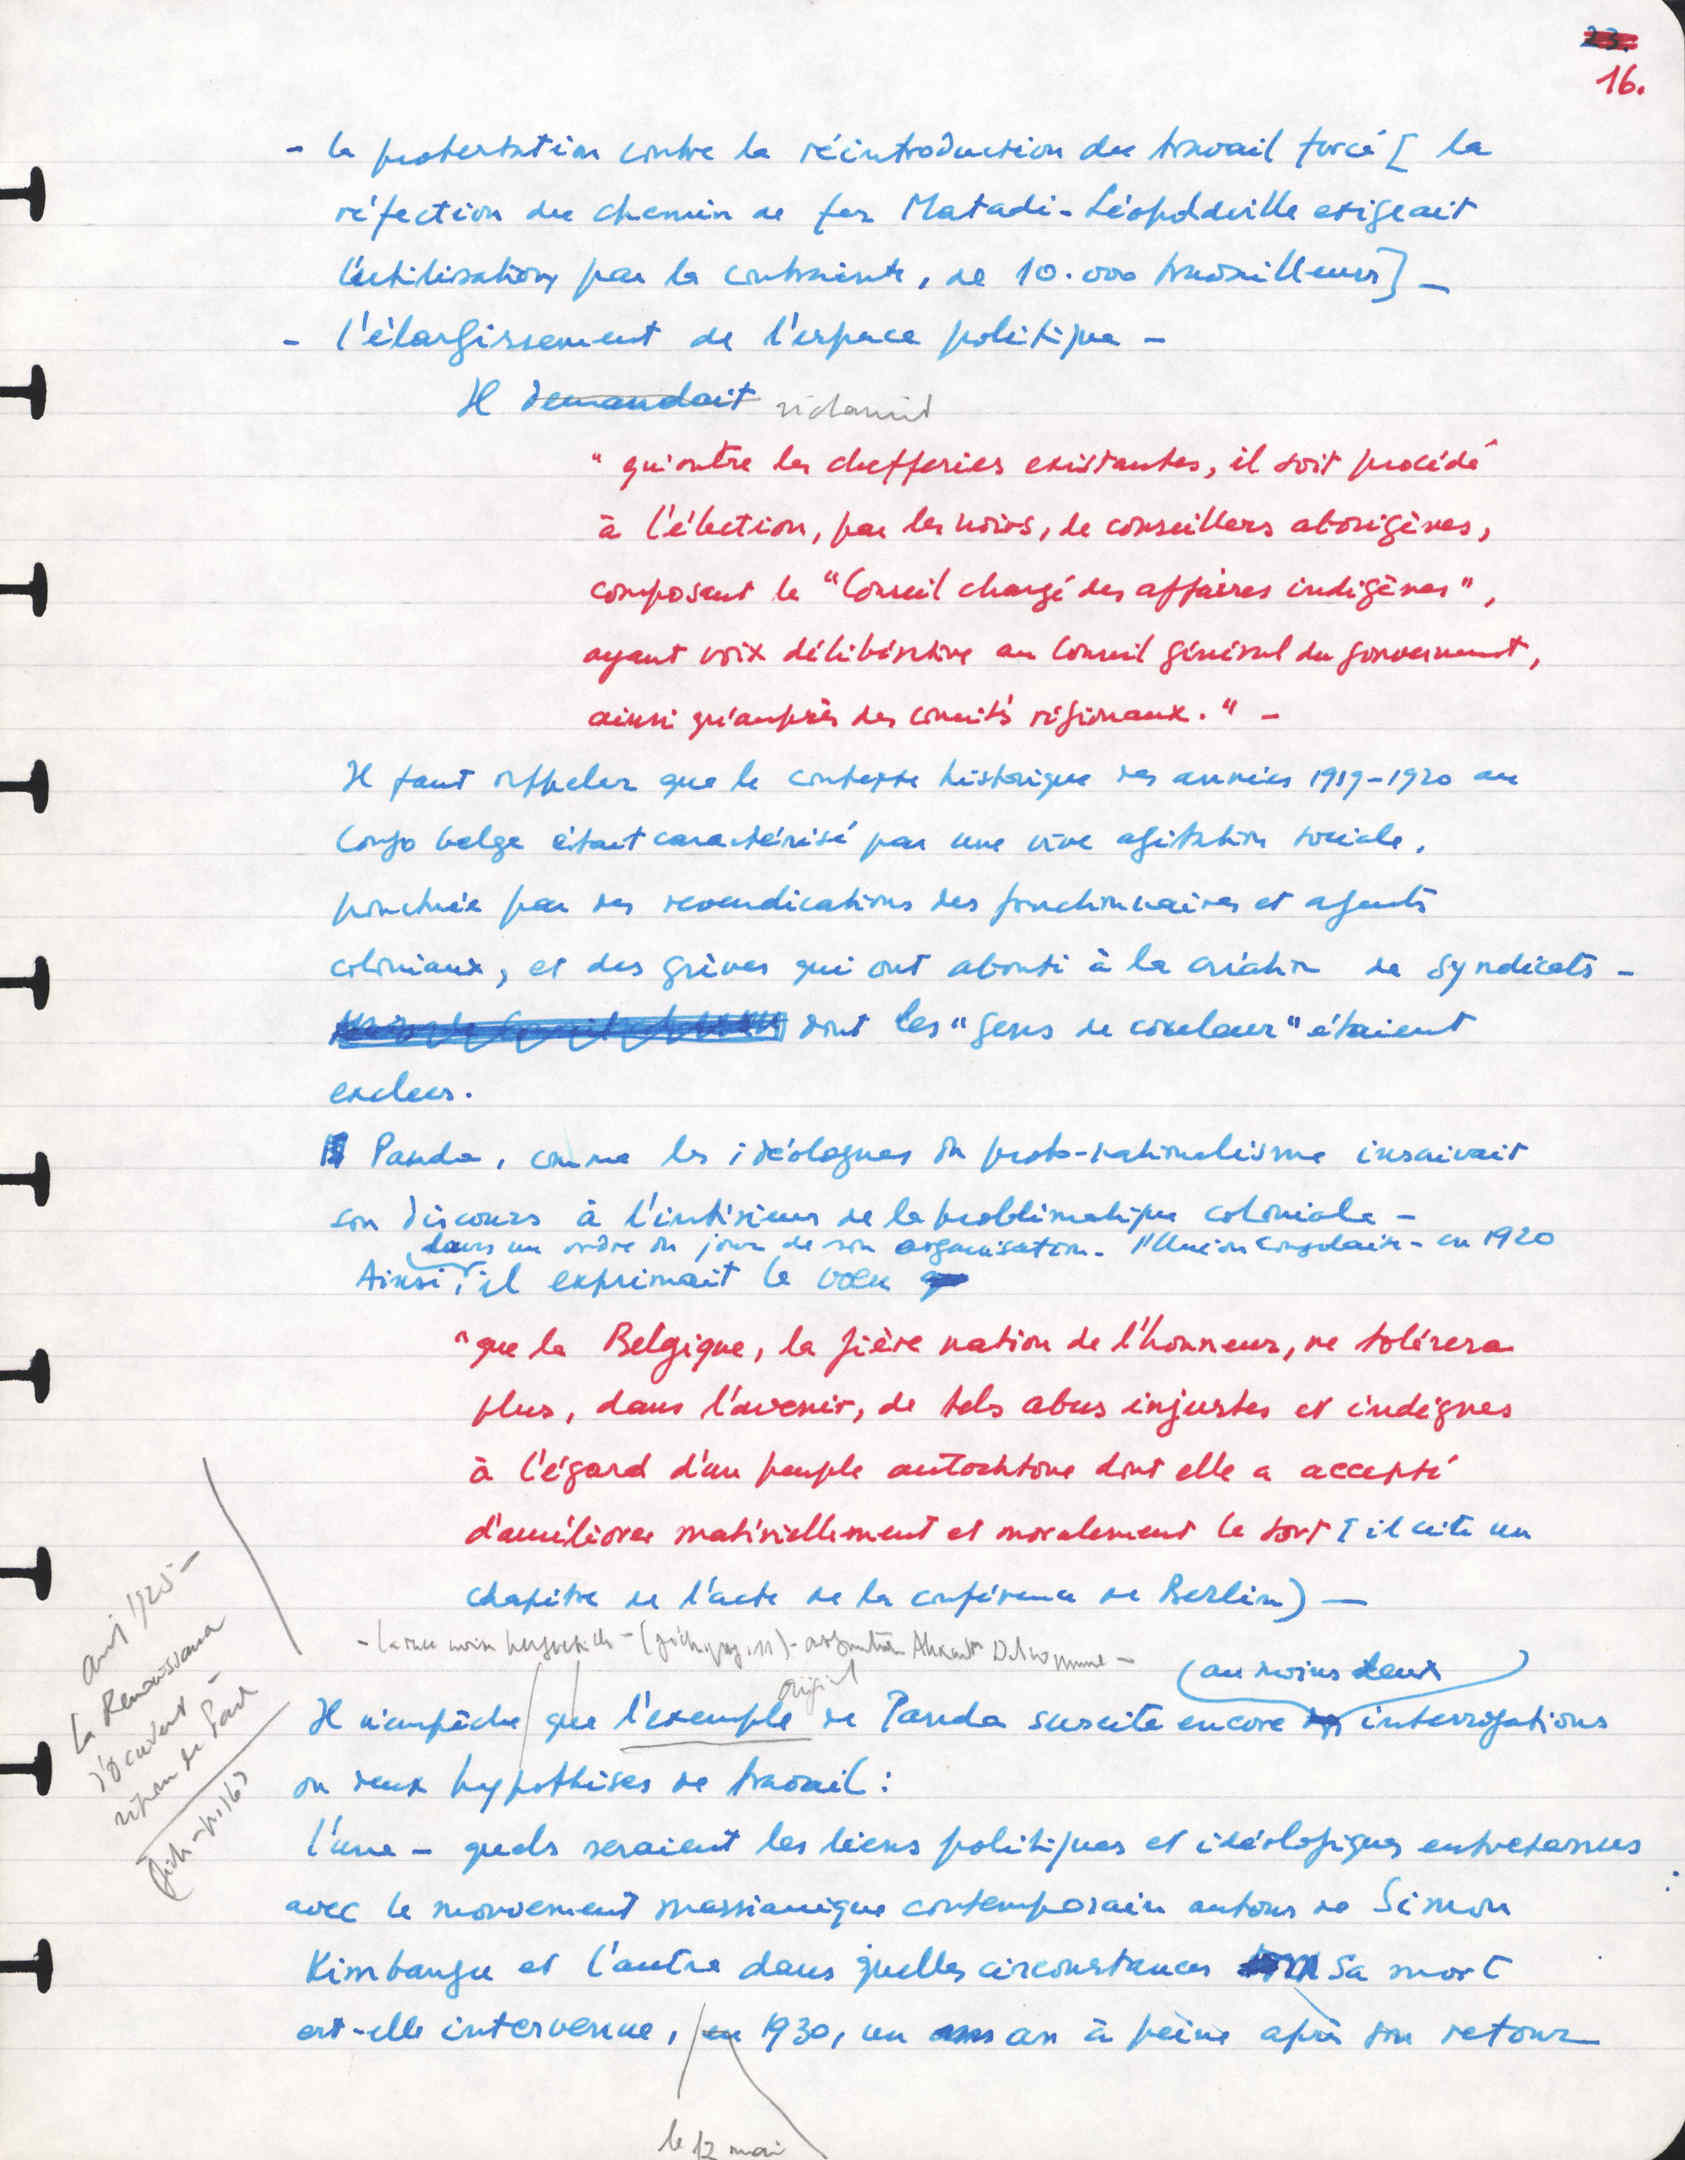 23.
16.
- la protestation contre la réintroduction du travail forcé [ la
réfection du chemin de fer Matadi-Léopoldville exigeait
l'utilisation, par la contrainte, de 10.000 travailleurs] -
- l'élargissement de l'espace politique -
Il demandait réclamait
" qu'outre les chefferies existantes, il soit procédé
à l'élection, par les noirs, de conseillers aborigènes,
composant le "Conseil chargé des affaires indigènes",
ayant voix délibérative au Conseil général du gouvernement,
ainsi qu'auprès des comités régionaux." -
Il faut rappeler que le contexte historique des années 1919-1920 au
Congo belge était caractérisé par une vive agitation sociale,
ponctuée par des revendications des fonctionnaires et agents
coloniaux, et des grèves qui ont abouti à la création de syndicats -
dont les "gens de couleur" étaient
exclus.
Panda, comme les idéologues du proto-nationalisme inscrivait
son discours à l'intérieur de la problématique coloniale -
dans un ordre du jour de son organisation - l'Union Congolaise - en 1920
Ainsi, il exprimait le vœu
"que la Belgique, la fière nation de l'honneur, ne tolérera
plus, dans l'avenir, de tels abus injustes et indignes
à l'égard d'un peuple autochtone dont elle a accepté
d'améliorer matériellement et moralement le sort [il cite un
chapitre de l'acte de la conférence de Berlin) -
avril 1925 -
La Renaissance
d'Occident -
- la race noire - Alexandre Delcommune -
(au moins deux)
original
Il n'empêche que l'exemple de Panda suscite encore des interrogations
ou deux hypothèses de travail :
l'une - quels seraient les liens politiques et idéologiques entretenus
avec le mouvement messianique contemporain autour de Simon
Kimbangu et l'autre dans quelles circonstances sa mort
est-elle intervenue, en 1930, un an à peine après son retour
le 12 mai